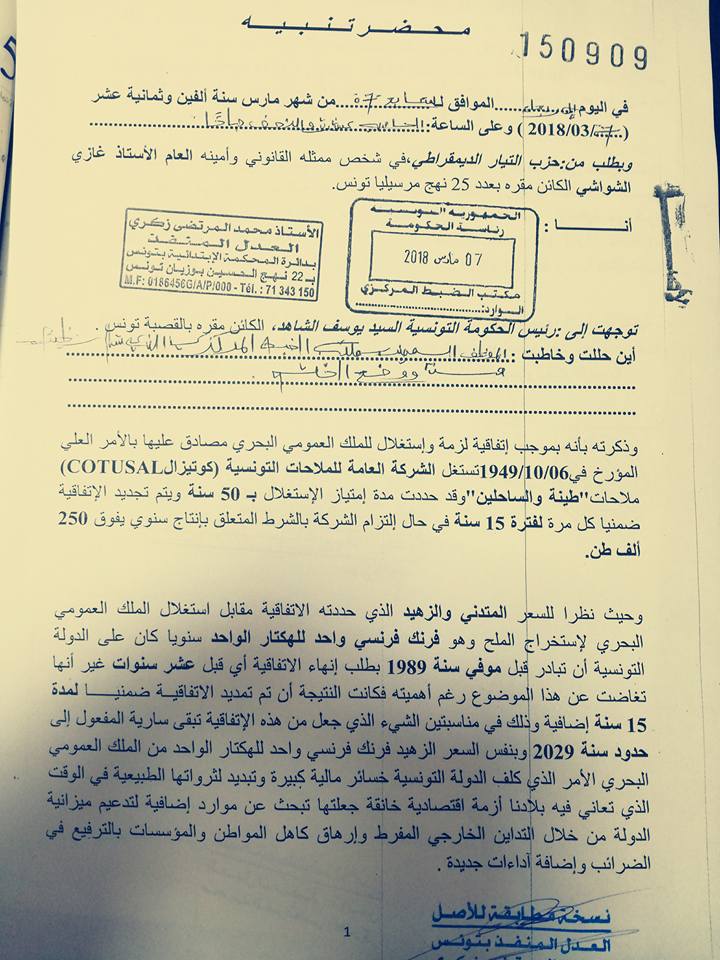 محضر تنبيه
150909
في اليوم الاربعاء الموافق للسابع 07 من شهر مارس سنة ألفين وثمانية عشر
(2018/03/07) وعلى الساعة:
وبطلب من:حزب التيار الديمقراطي،في شخص ممثله القانوني وأمينه العام الأستاذ غازي
الشواشي الكائن مقره بعدد 25 نهج مرسيليا تونس.
أنــا :
الأستاذ محمد المرتضى زكري
العدل المنفذ
بدائرة المحكمة الإبتدائية بتونس
22 نهج الحسين بوزيان تونس
M.F: 0186456G/A/P/000 - Tél. : 71 343 150
الجمهورية التونسية
رئاسة الحكومة
07 مارس 2018
مكتب الضبط المركزي
الوارد:
توجهت إلى :رئيس الحكومة التونسية السيد يوسف الشاهد، الكائن مقره بالقصبة تونس .
أين حللت وخاطبت :
ووضع الختم
وذكرته بأنه بموجب إتفاقية لزمة وإستغلال للملك العمومي البحري مصادق عليها بالأمر العلي
المؤرخ في1949/10/06تستغل الشركة العامة للملاحات التونسية (كوتيزالCOTUSAL)
ملاحات"طينة والساحلين"وقد حددت مدة إمتياز الإستغلال بـ 50 سنة ويتم تجديد الإتفاقية
ضمنيا كل مرة لفترة 15 سنة في حال إلتزام الشركة بالشرط المتعلق بإنتاج سنوي يفوق 250
ألف طن.
وحيث نظرا للسعر المتدني والزهيد الذي حددته الاتفاقية مقابل استغلال الملك العمومي
البحري لإستخراج الملح وهو فرنك فرنسي واحد للهكتار الواحد سنويا كان على الدولة
التونسية أن تبادر قبل موفي سنة 1989 بطلب إنهاء الاتفاقية أي قبل عشر سنوات غير أنها
تغاضت عن هذا الموضوع رغم أهميته فكانت النتيجة أن تم تمديد الاتفاقية ضمنيــا لمدة
15 سنة إضافية وذلك في مناسبتين الشيء الذي جعل من هذه الإتفاقية تبقى سارية المفعول إلى
حدود سنة 2029 وبنفس السعر الزهيد فرنك فرنسي واحد للهكتار الواحد من الملك العمومي
البحري الأمر الذي كلف الدولة التونسية خسائر مالية كبيرة وتبديد لثرواتها الطبيعية في الوقت
الذي تعاني فيه بلادنا أزمة اقتصادية خانقة جعلتها تبحث عن موارد إضافية لتدعيم ميزانية
الدولة من خلال التداين الخارجي المفرط وإرهاق كاهل المواطن والمؤسسات بالترفيع في
الضرائب وإضافة آداءات جديدة .
نسخة مطابقة للأصل
العدل المنفذ بتونس
1